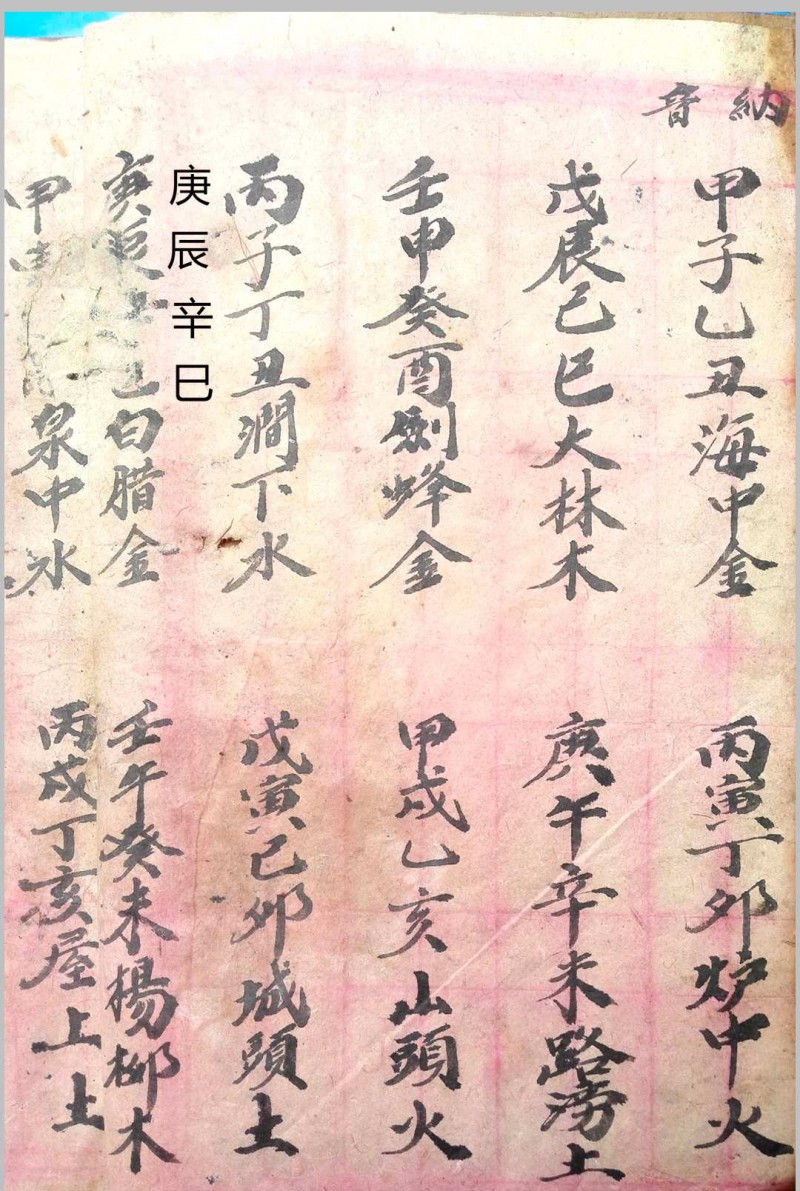 納音
甲子乙丑海中金
丙寅丁卯炉中火
戊辰己巳大林木
庚午辛未路滂土
壬申癸酉劍鋒金
甲戌乙亥山頭火
丙子丁丑澗下水
戊寅己卯城頭土
庚辰辛巳
庚辰 白腊金
壬午癸未楊柳木
甲申 泉中水
丙戌丁亥屋上土